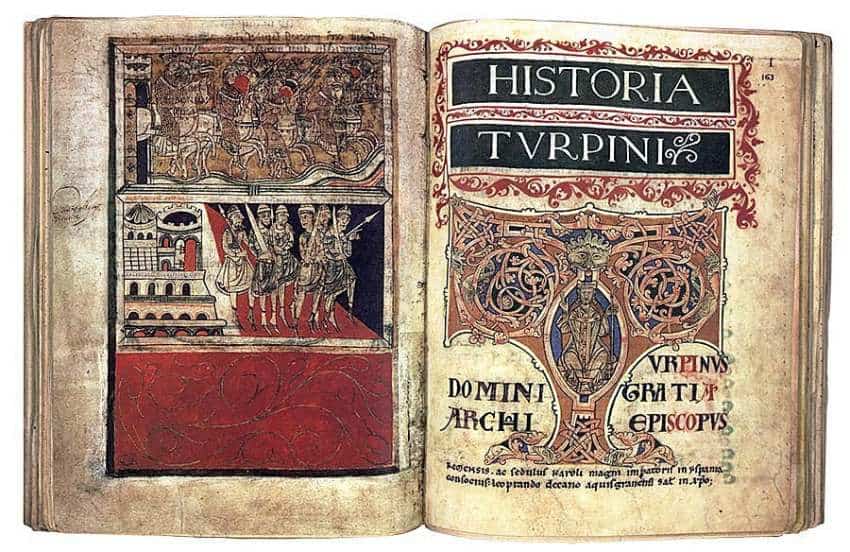 I
163
HISTORIA
TVRPINI
T
VRPINVS
DOMINI GRATIA
ARCHI EPISCOPVS
REMENSIS. ac sedulus Karoli magni impatoris in yspania
consocius: leoprando decano aquisgranensi sat in xpo;